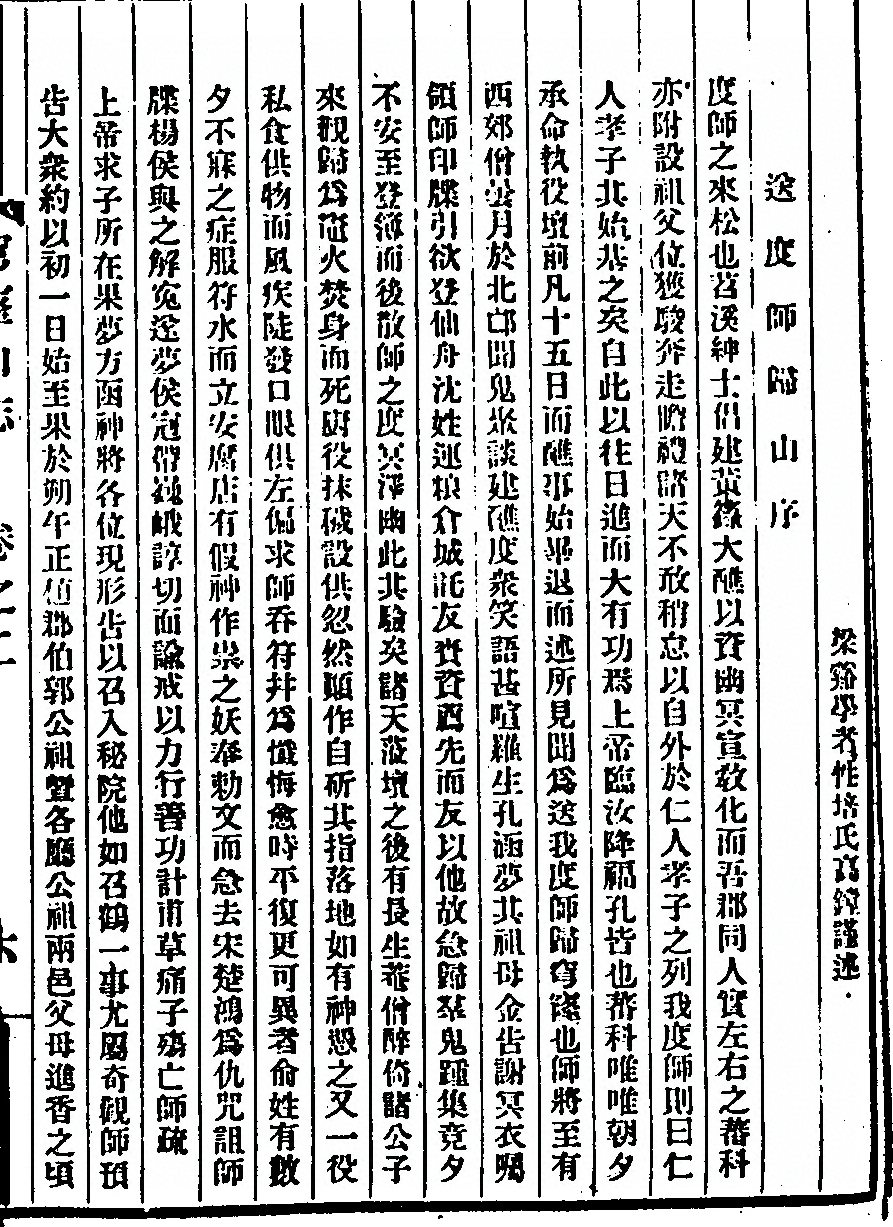 送度師歸山序
梁谿學者性培氏高鐸謹述
度師之來松也苕溪紳士倡建黃籙大醮以資幽冥宣敎化而吾郡同人實左右之蕃科
亦附設祖父位獲駿奔走瞻禮諸天不敢稍怠以自外於仁人孝子之列我度師則曰仁
人孝子其始基之矣自此以往日進而大有功焉上帝臨汝降福孔皆也蕃科唯唯朝夕
承命執役壇前凡十五日而醮事始畢退而述所見聞爲送我度師歸穹窿也師將至有
西郊僧曇月於北邙聞鬼衆談建醮度衆笑語甚喧羅生孔涵夢其祖母金告謝冥衣囑
領師印牒引欲登仙舟沈姓運粮倉城託友賚資薦先而友以他故急歸羣鬼踵集竞夕
不安至登簿而後散師之度冥澤幽此其驗矣諸天蒞壇之後有長生菴僧醉倚諸公子
來觀歸爲竈火焚身而死厨役抹穢設供忽然顚作自斫其指落地如有神慇之又一役
私食供物而風疾陡發口眼俱左偏求師呑符幷爲懺悔愈時平復更可異者俞姓有數
夕不寐之症服符水而立安腐店有假神作祟之妖奉勅文而急去宋楚鴻爲仇咒詛師
牒楊侯與之解寃遂夢侯冠帶巍峨諄切而諭戒以力行善功計甫草痛子殤亡師疏
上帝求子所在果夢方函神將各位現形告以召入秘院他如召鶴一事尤屬奇觀師預
告大衆約以初一日始至果於朔午正値郡伯郭公祖曁各廳公祖兩邑父母進香之頃
穹窿山志 卷之二